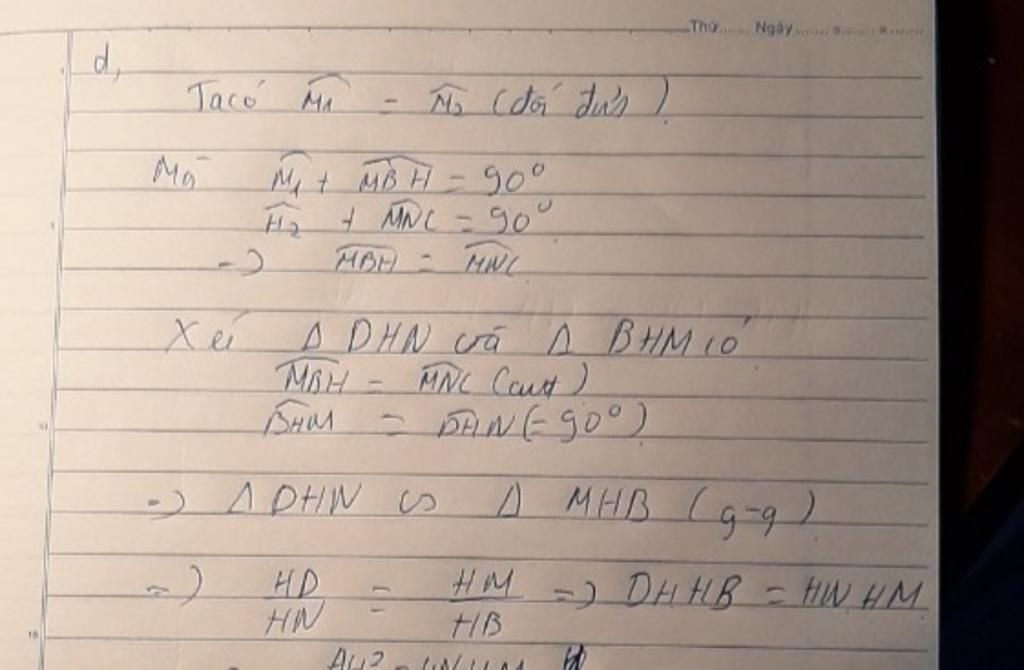 Thứ....... Ngày...... o....... o.......
d,
Ta có M̂1 = M̂2 (đối đỉnh)
Mà M̂1 + M̂BH = 90°
Ĥ2 + M̂NC = 90°
=> M̂BH = M̂NC
Xét Δ DHN và Δ BHM có
M̂BH = M̂NC (cmt)
B̂HM = D̂HN (= 90°)
=> Δ DHN ∽ Δ MHB (g-g)
=> HD/HN = HM/HB => DH HB = HN HM